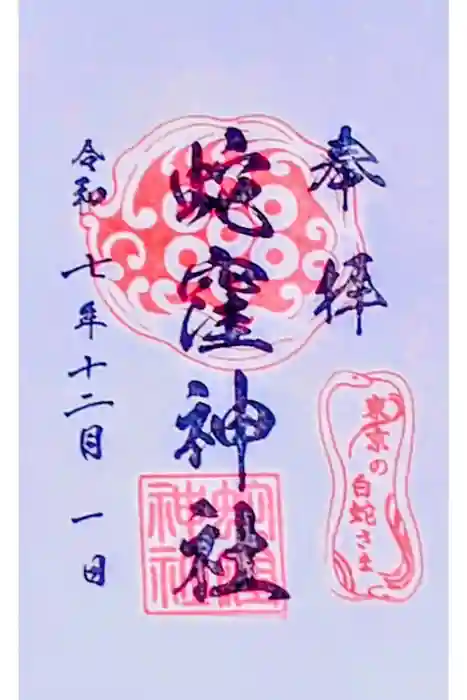 奉拝
東京の白蛇さま
蛇窪神社
蛇窪神社
令和七年十二月一日